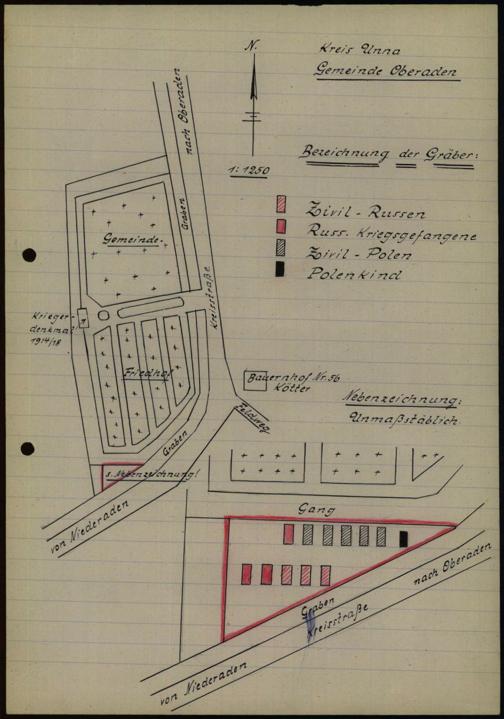 N.
Kreis Unna
Gemeinde Oberaden
1:1250
Bezeichnung der Gräber:
Zivil - Russen
Russ. Kriegsgefangene
Zivil - Polen
Polenkind
nach Oberaden
Graben
Kreisstraße
Gemeinde-
Krieger-
denkmal
1914/18
Friedhof
Bauernhof Nr. 56
Kötter
Feldweg
Graben
s. Nebenzeichnung!
von Niederaden
Nebenzeichnung:
Unmaßstäblich
Gang
Graben
Kreisstraße
nach Oberaden
von Niederaden